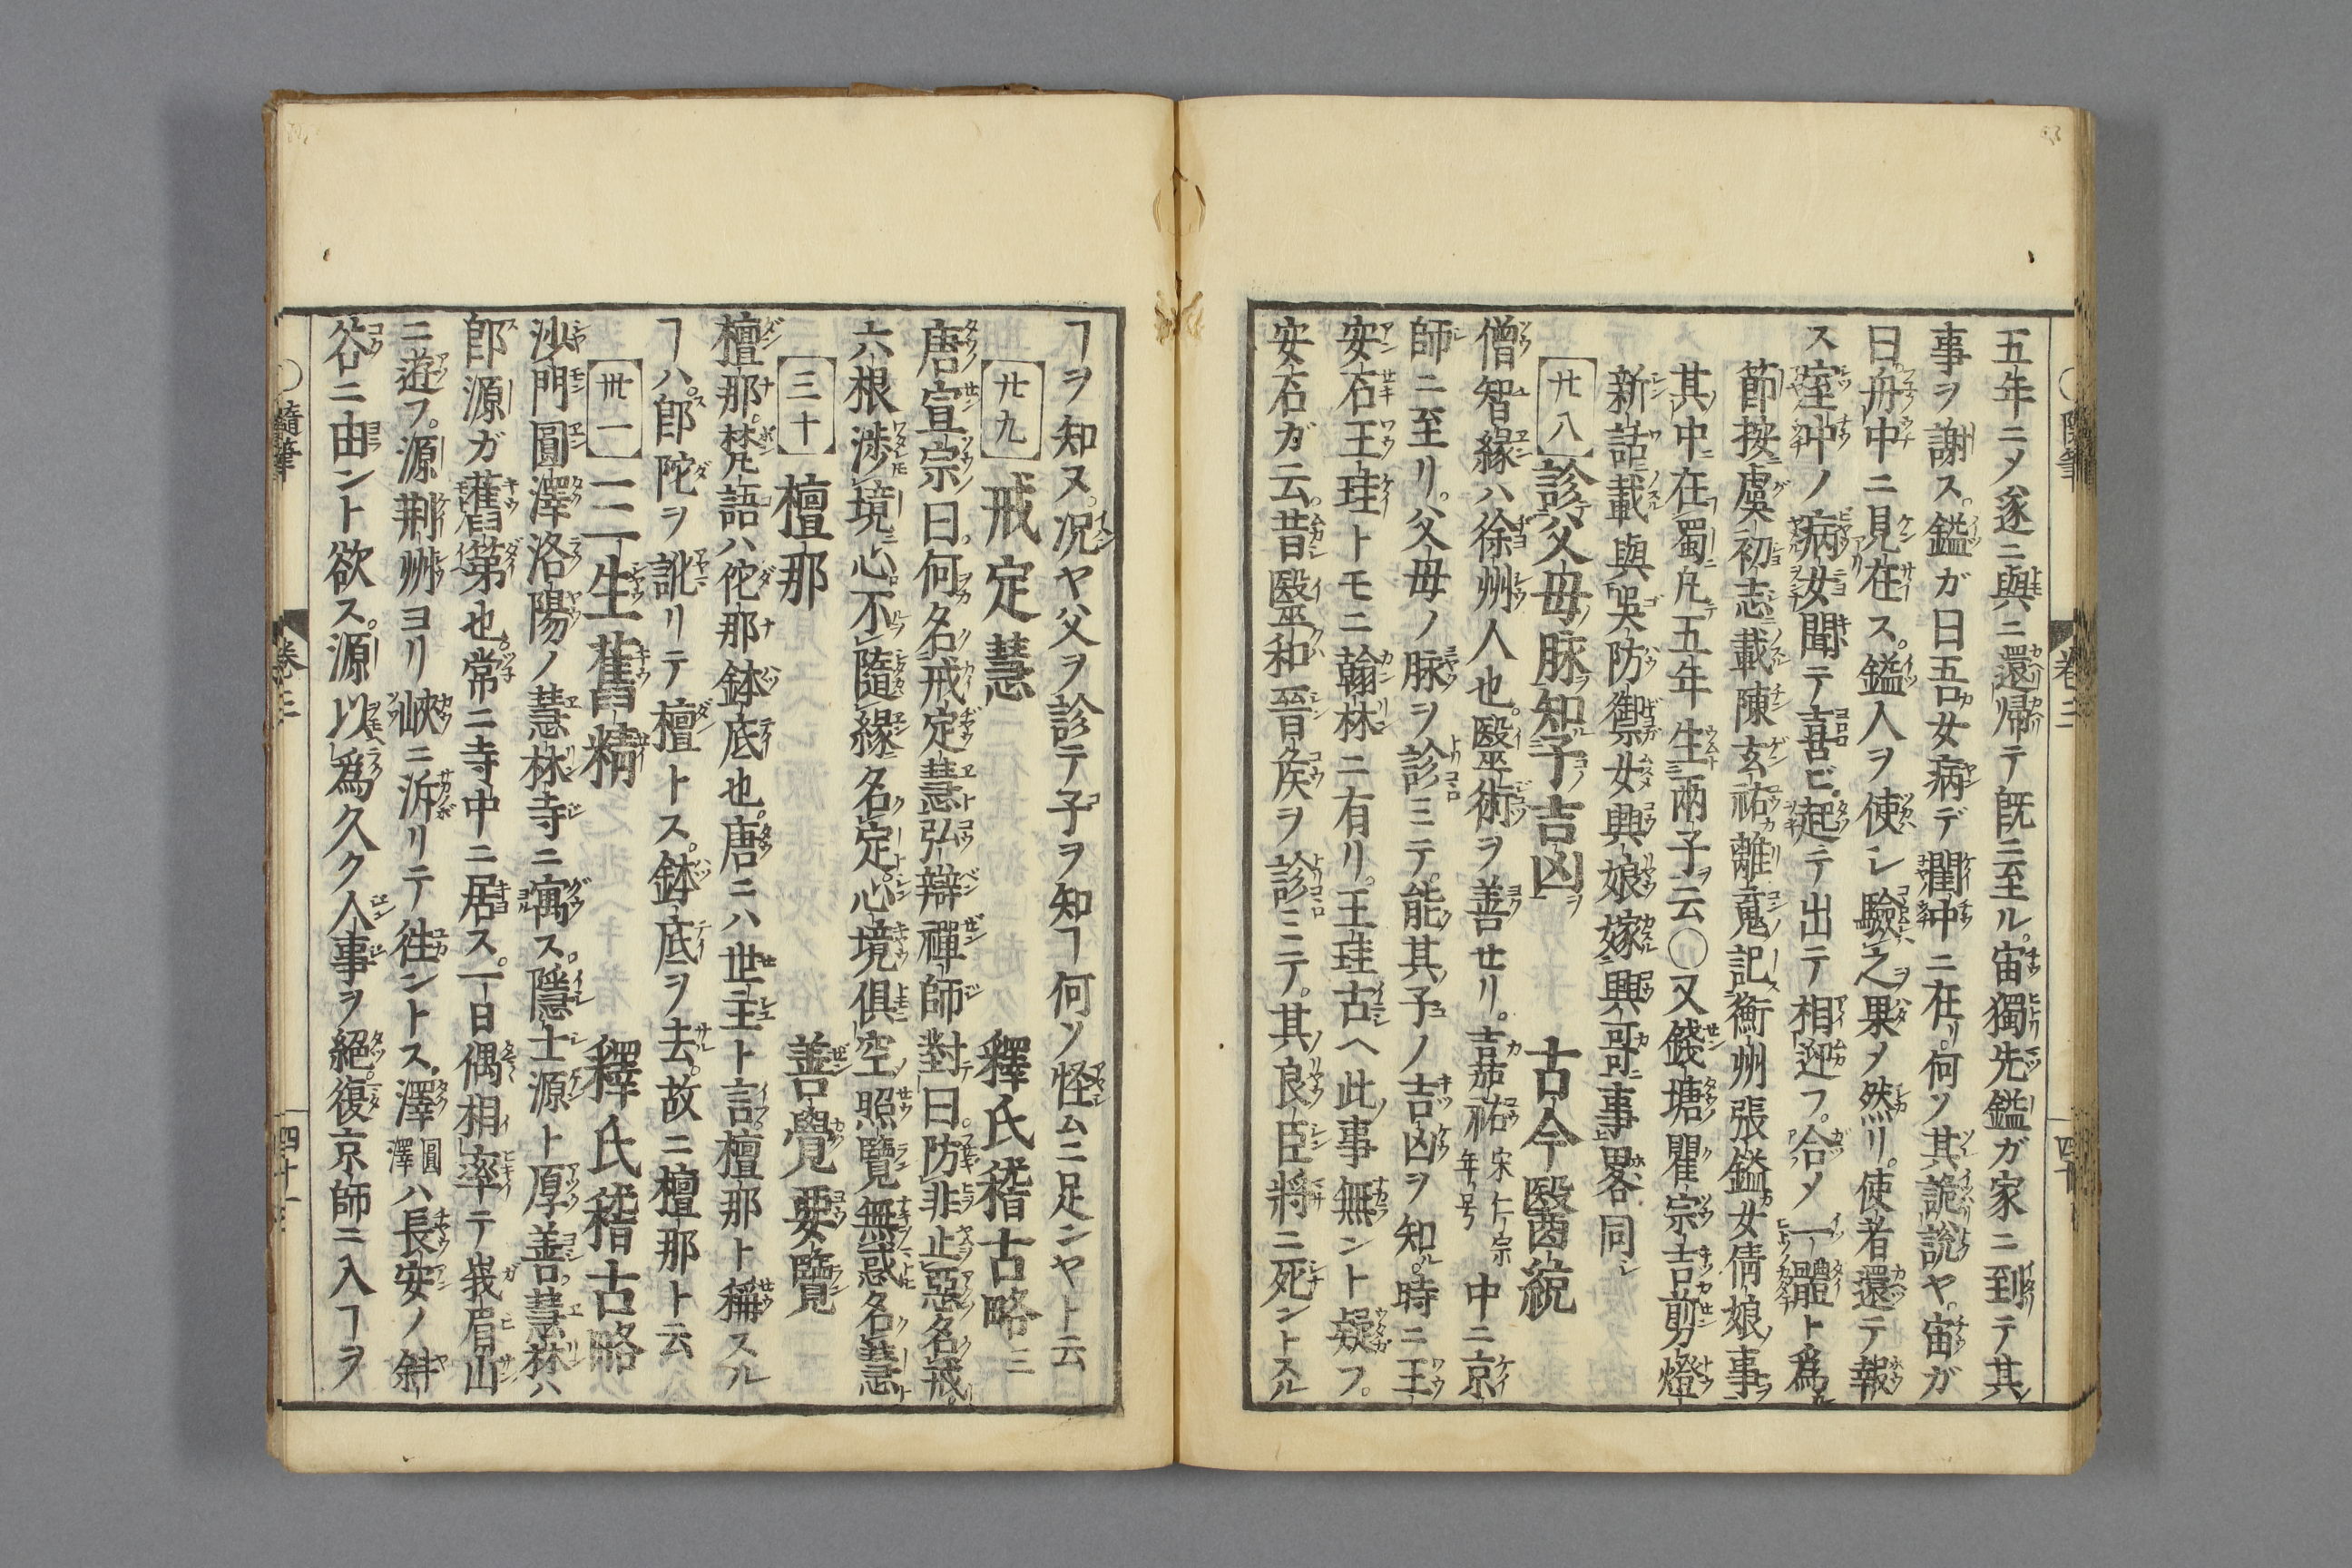 五年ニメ遂ニ與ニ還帰テ既ニ至ル。宙獨先鎰ガ家ニ到テ其
事ヲ謝ス。鎰ガ曰吾女病デ閨中ニ在リ。何ソ其詭説ヤ。宙ガ
曰舟中ニ見在ス。鎰人ヲ使レ驗之果メ然リ。使者還テ報
ス室中ノ病女聞テ喜ビ起テ出テ相迎フ。合メ一體ト爲ル
節按虞初志載陳玄祐離䰟記衡州張鎰女倩娘事
其中在蜀凡五年生兩子云〇又錢塘瞿宗吉剪燈
新話載與吳防禦女興娘嫁興哥事畧同
[廿八]診父母脉知子吉凶 古今醫統
僧智縁ハ徐州人也。醫術ヲ善セリ。吉嘉祐宋仁宗年号中ニ京
師ニ至リ。父母ノ脉ヲ診ミテ。能其子ノ吉凶ヲ知ル。時ニ王
安石王珪トモニ翰林ニ有リ。王珪古ヘ此事無ント疑フ。
安石ガ云。昔醫和晉侯ヲ診ミテ。其良臣將ニ死ントスル
ヿヲ知ヌ。況ヤ父ヲ診テ子ヲ知ヿ何ソ怪ムニ足ンヤト云
[廿九]戒定慧 釋氏稽古略三
唐宣宗曰。何名戒定慧弘辯禪師對曰。防非止惡名戒。
六根渉境心不隨縁名定。心境俱空照覽無惑名慧
[三十]檀那 善覺要覽
檀那。梵語ハ佗那鉢底也。唐ニハ世主ト言檀那ト稱スル
ヿハ。卽陀ヲ訛リテ檀トス。鉢底ヲ去。故ニ檀那ト云
[卅一]三生舊精 釋氏稽古略
沙門圓澤洛陽ノ慧林寺ニ寓ス。隱士源ト厚善慧林ハ
卽源ガ舊第也。常ニ寺中ニ居ス。一日偶相率テ峩眉山
ニ遊フ。源荆州ヨリ峽ニ泝リテ徃ントス。澤圓澤ハ長安ノ斜
谷ニ由ント欲ス。源以爲久ク人事ヲ絕。復京師ニ入ヿヲ
隨筆 卷三 四十一